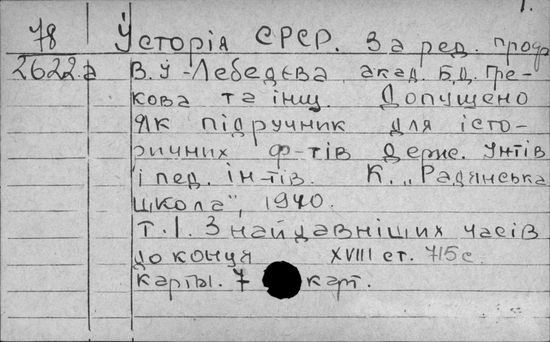 1.
78 Історія СРСР. За ред. проф.
2622a В.І-Лебедєва, акад. Б.Д. Гре-
кова та інш. Допущено
як підручник для істо-
ричних ф-тів держ. унтів
і пед. ін-тів. К. „Радянська
школа", 1940.
Т.1. З найдавніших часів
до конця XVIII ст. 715 с
карты. 7 карт.